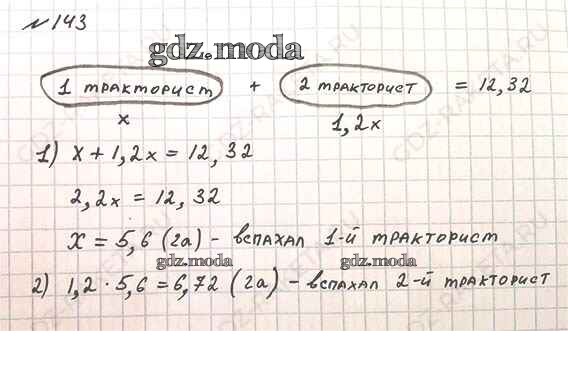 № 143
gdz.moda
1 тракторист + 2 тракторист = 12,32
x 1,2x
1) x + 1,2x = 12,32
2,2x = 12,32
x = 5,6 (га) - вспахал 1-й тракторист
gdz.moda gdz.moda
2) 1,2 · 5,6 = 6,72 (га) - вспахал 2-й тракторист